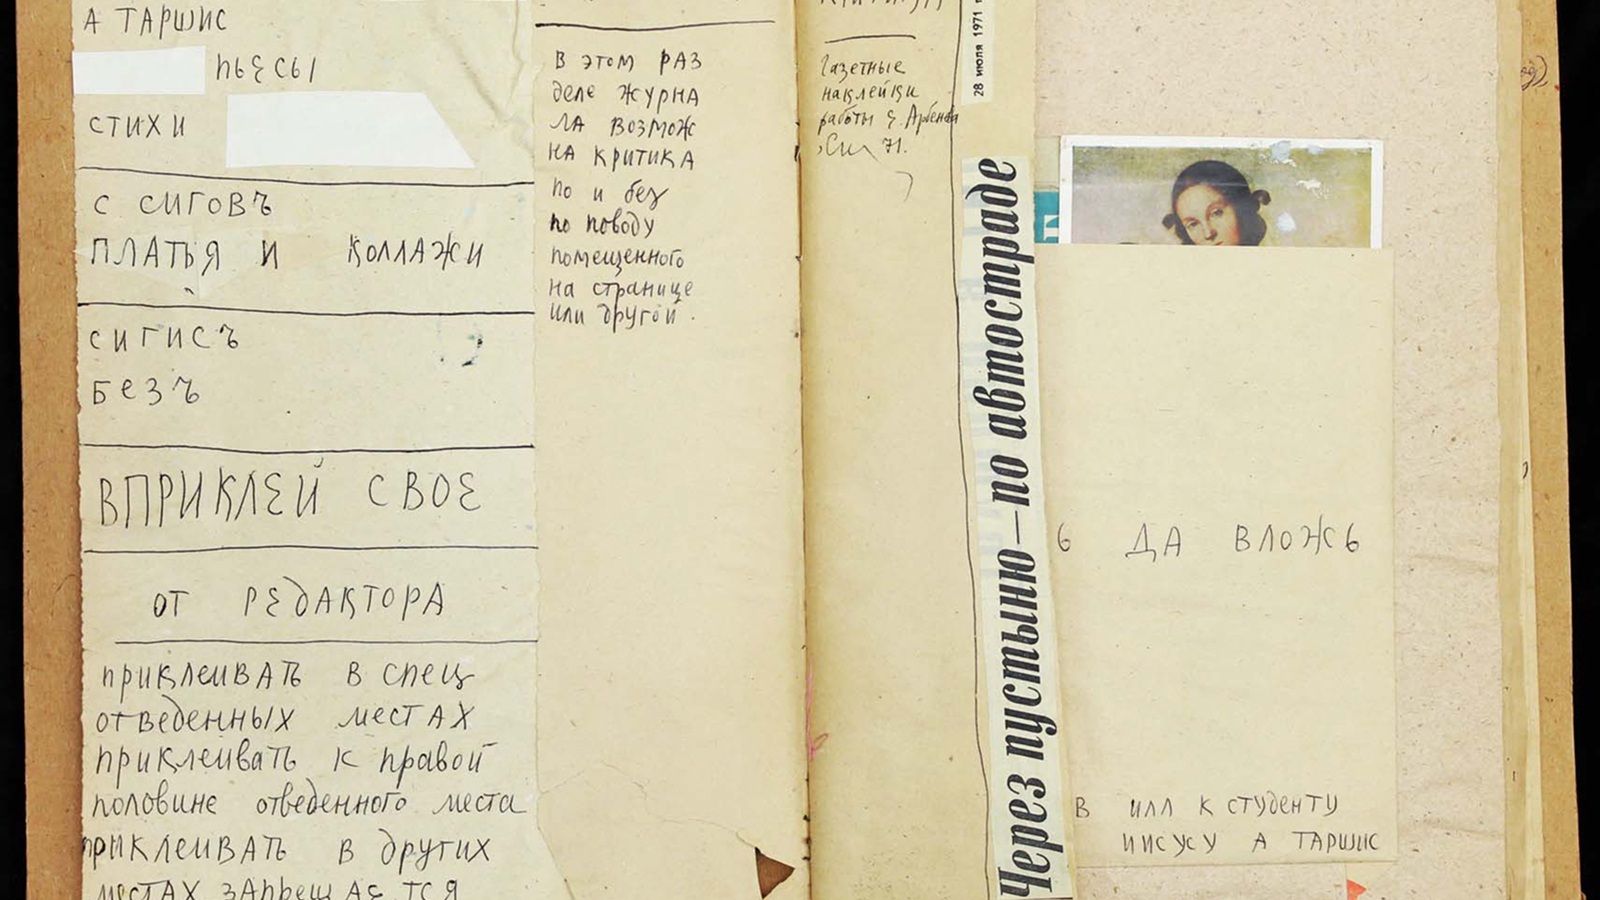 А ТАРШИС
ПЬЕСЫ
СТИХИ
С СИГОВЪ
ПЛАТЬЯ И КОЛЛАЖИ
СИГИСЪ
БЕЗЪ
ВПРИКЛЕЙ СВОЕ
ОТ РЕДАКТОРА
приклеивать в спец
отведенных местах
приклеивать к правой
половине отведенного места
приклеивать в других
местах запрещается
В этом раз
деле журна
ла возмож
на критика
по и без
по поводу
помещенного
на странице
или другой.
Газетные
наклейки
работы
71.
28 июля 1971
Через пустыню—по автостраде
Ь ДА ВЛОЖЬ
В илл к студенту
иисусу А ТАРШИС